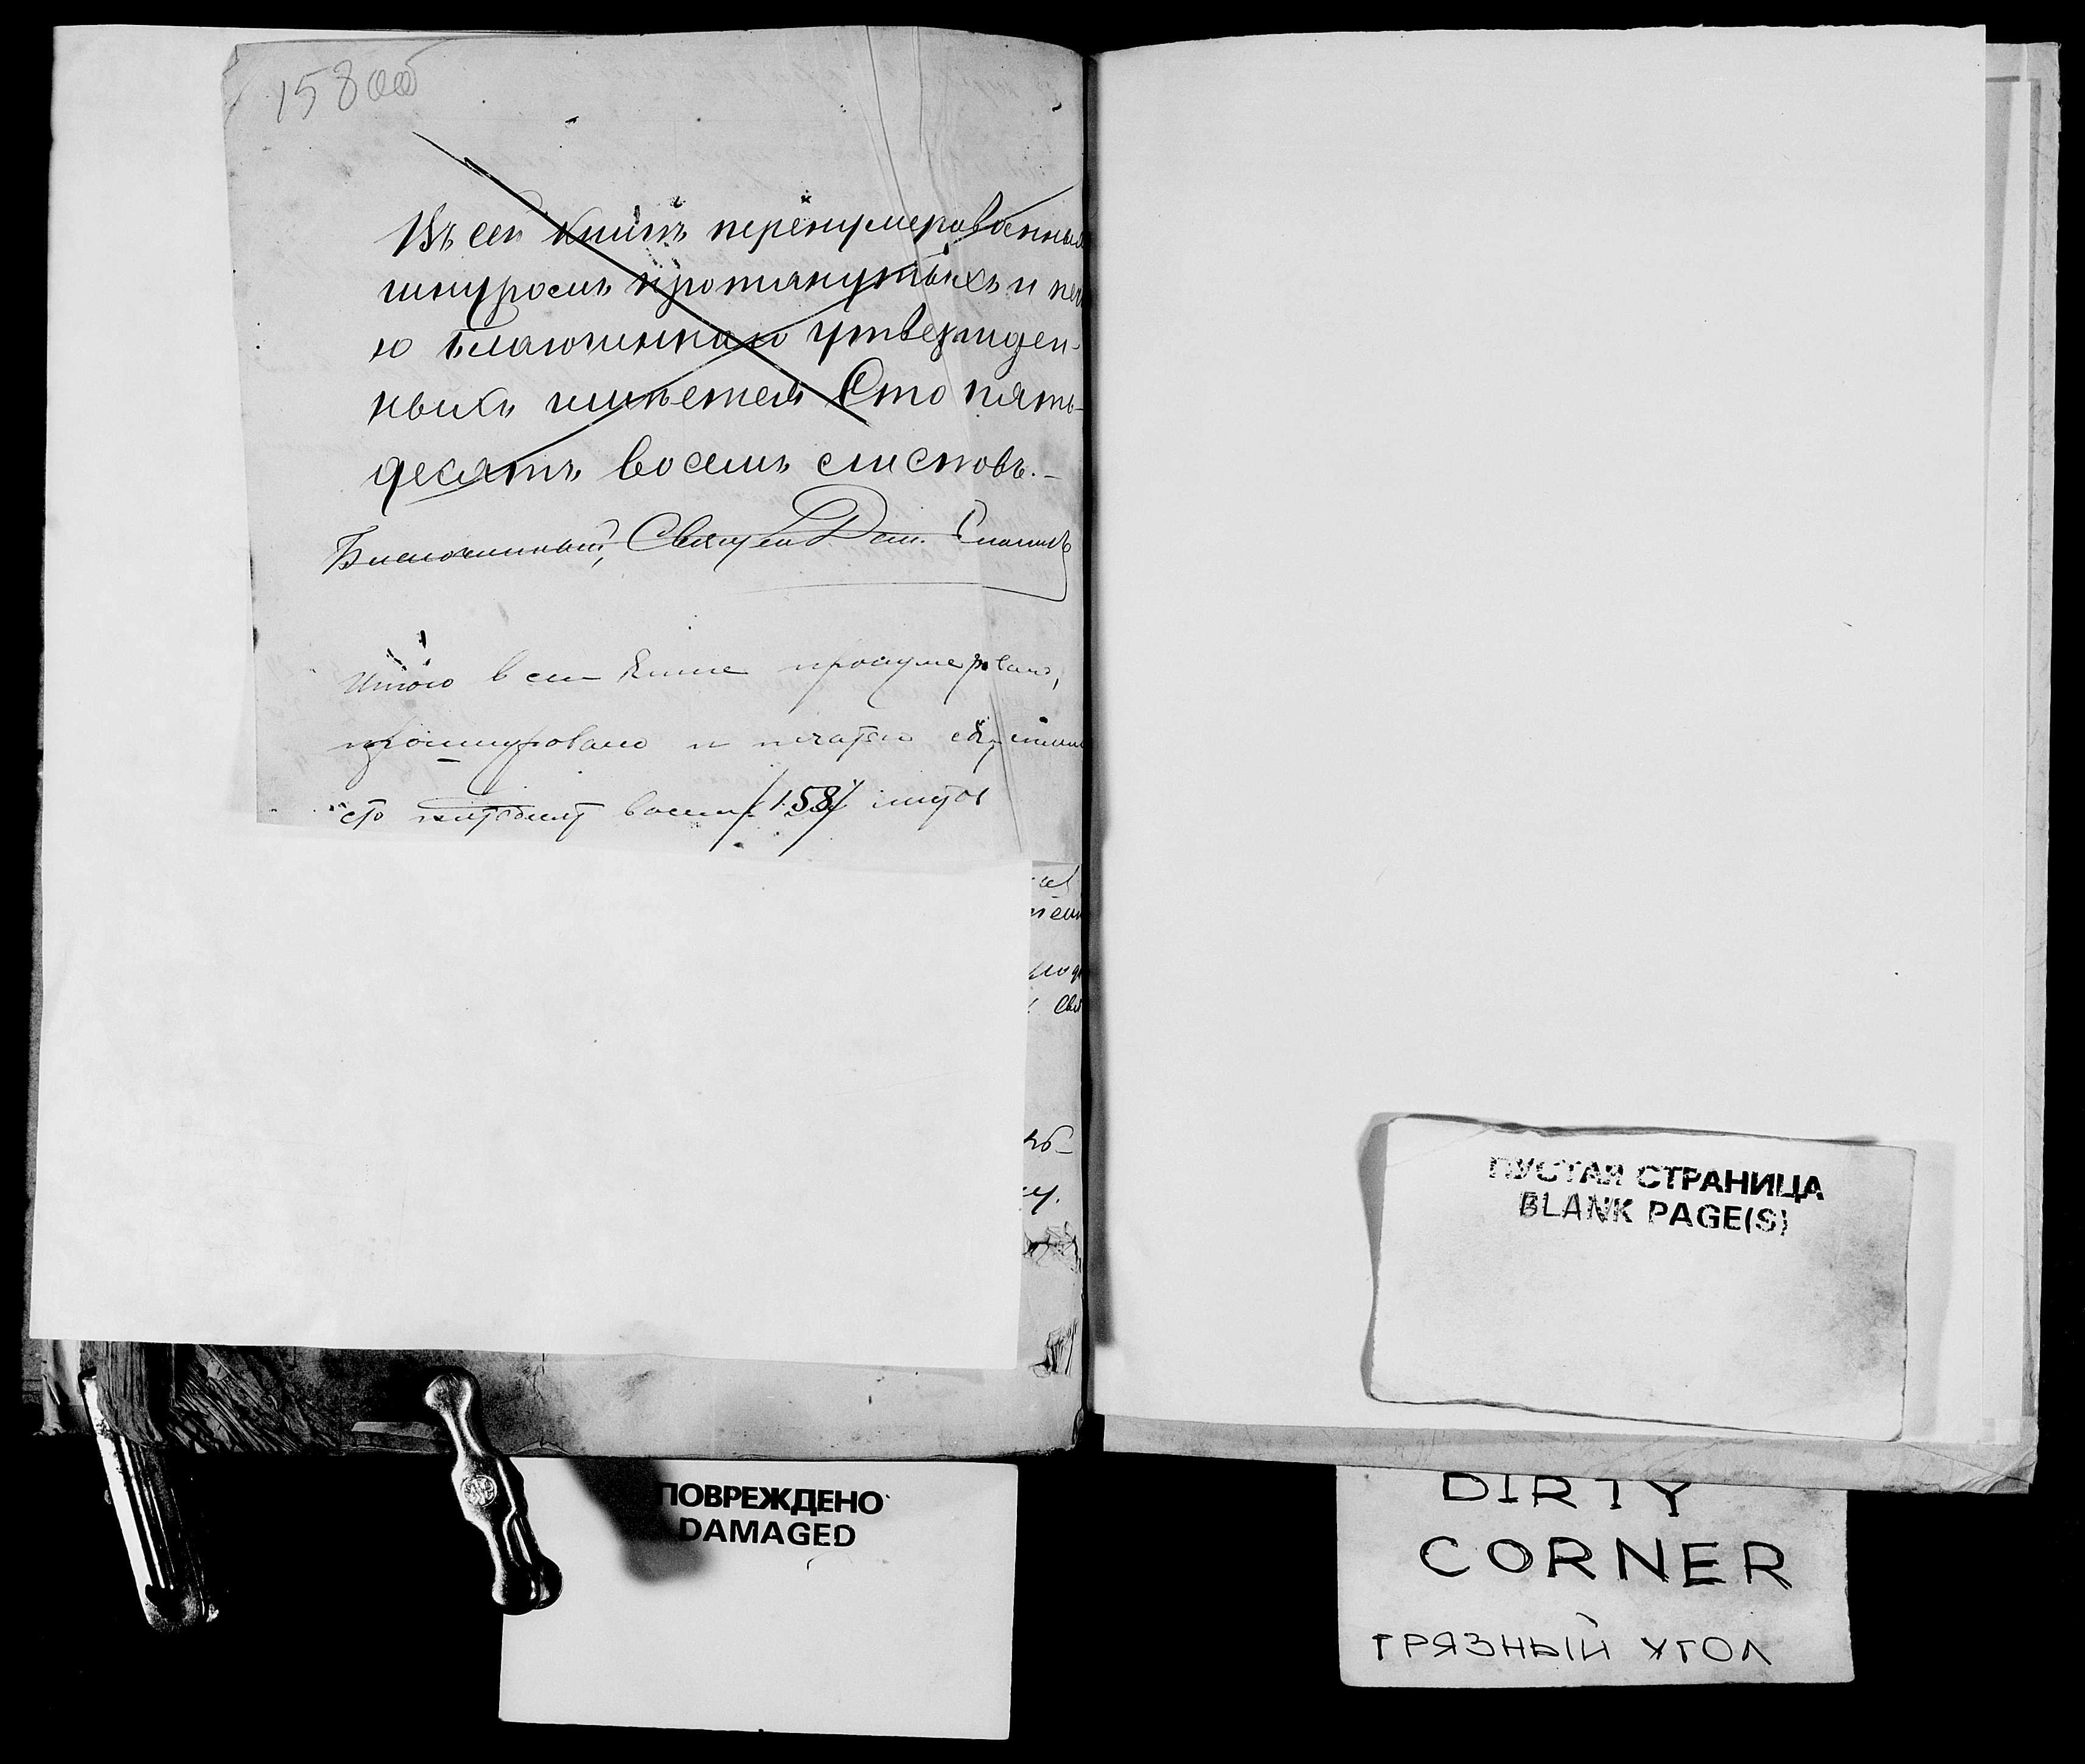 158об
Въ сей книгѣ перенумерованныхъ
шнуромъ протянутыхъ и печ
ю благочиннаго утвержден-
ныхъ имѣетсѧ Сто пять-
десятъ восемь листовъ.-
Благочинный, Священ Дим.
Итого в сей книге пронумеровано,
прошнуровано и печатью скреплено
сто пятьдесят восемь /158/ листов
ПУСТАЯ СТРАНИЦА
BLANK PAGE(S)
ПОВРЕЖДЕНО
DAMAGED
DIRTY
CORNER
ГРЯЗНЫЙ УГОЛ